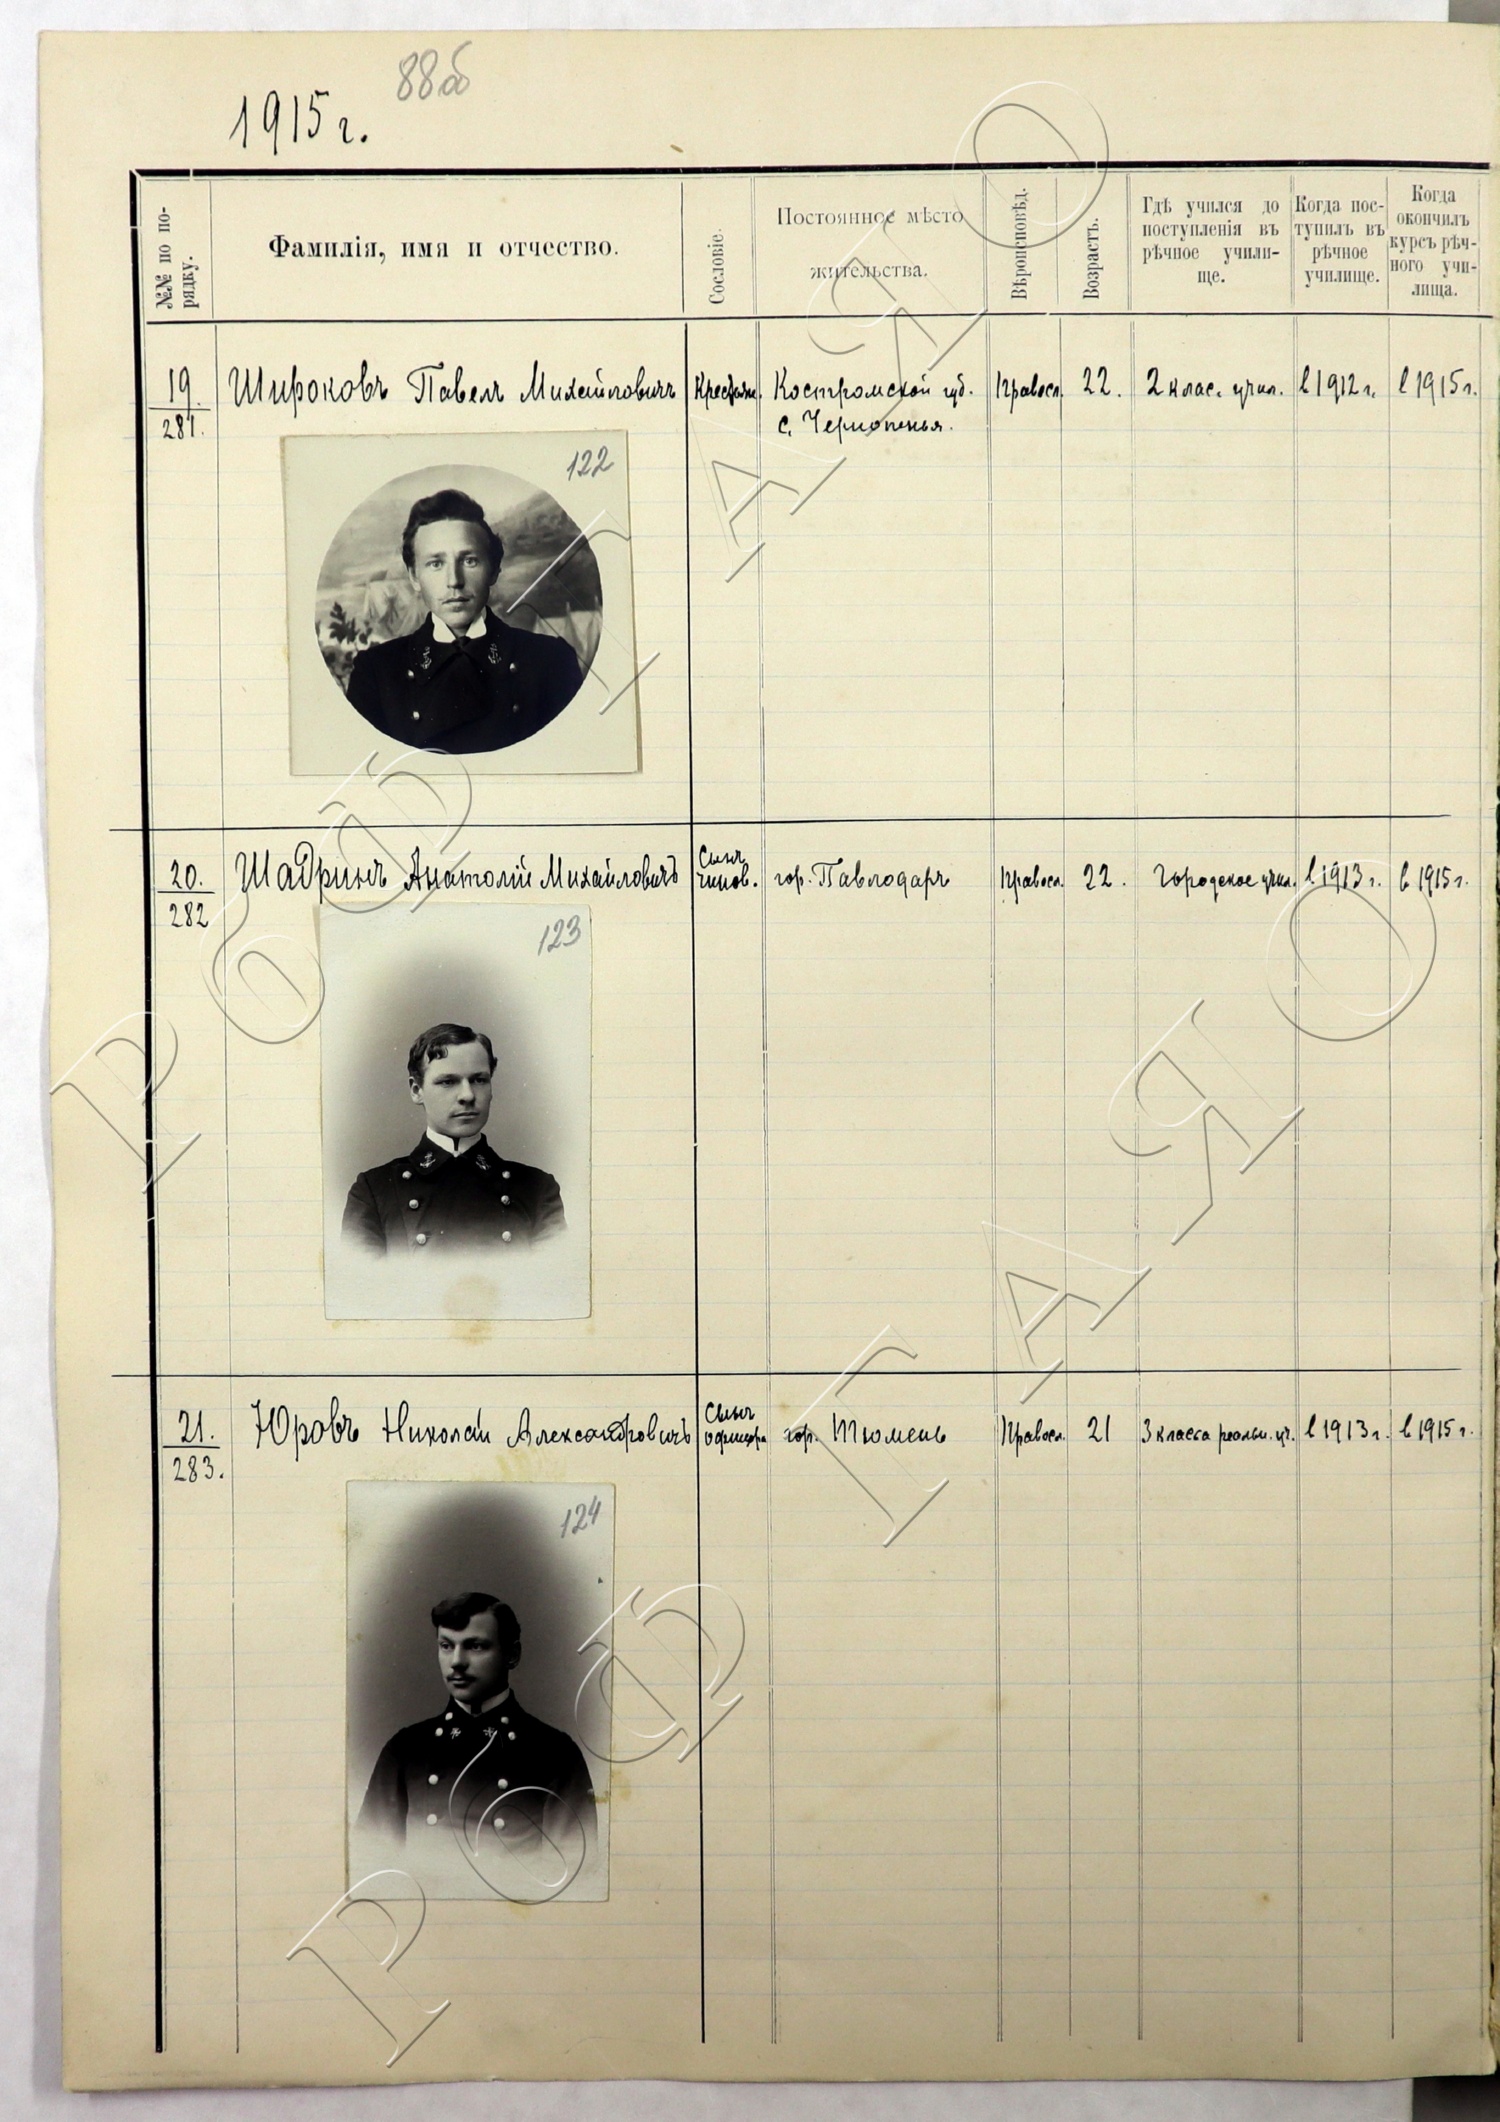 88об
1915 г.
№№ по по-
рядку.
Фамилія, имя и отчество.
Сословіе.
Постоянное мѣсто
жительства.
Вѣроисповѣд.
Возрастъ.
Гдѣ учился до
поступленія въ
рѣчное учили-
ще.
Когда пос-
тупилъ въ
рѣчное
училище.
Когда
окончилъ
курсъ рѣч-
ного учи-
лища.
19. Широковъ Павелъ Михайловичъ Крестьян. Костромской губ. Правосл. 22. 2 клас. учил. в 1912 г. в 1915 г.
281. с.
122
20. Шадринъ Анатолій Михайловичъ Сынъ гор. Павлодаръ Правосл. 22. Городское учил. в 1913 г. в 1915 г.
282 чинов.
123
21. Юровъ Николай Александровичъ Сынъ гор. Тюмень Правосл. 21 3 класса реальн. уч. в 1913 г. в 1915 г.
283. офицера
124
РОФ ГАЯО
РОФ ГАЯО